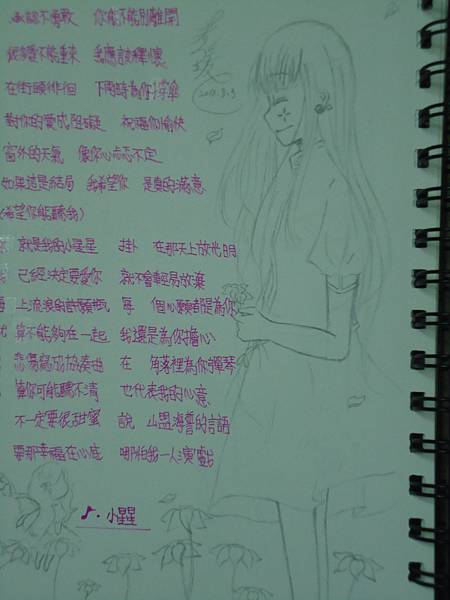 承認不勇敢 你能不能別離開
很多愛不能重來 我應該釋懷
在街頭徘徊 下雨時為你撐傘
對你的愛成阻礙 祝福你愉快
窗外的天氣 像你心忐忑不定
如果這是結局 我希望你 是真的滿意
(希望你能聽我)
就是我的小星星 掛 在那天上放光明
已經決定要愛你 就不會輕易放棄
上流浪的許願瓶 每 個心願都是為你
算不能夠在一起 我還是為你擔心
悲傷寫成協奏曲 在 角落裡為你彈琴
算你可能聽不清 也代表我的心意
不一定要很甜蜜 說 山盟海誓的言語
要那幸福在心底 哪怕我一人演戲
♪・小星星